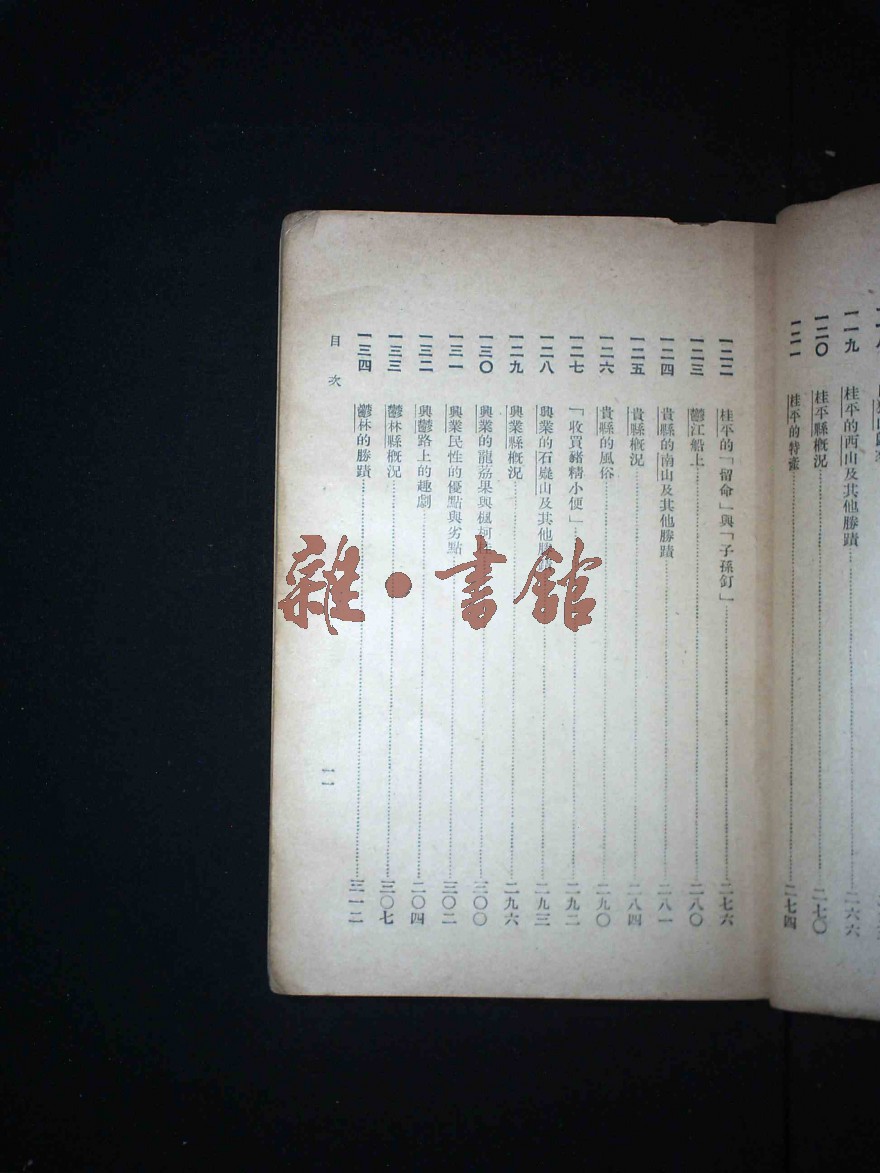 一一九 桂平的西山及其他勝蹟 二六六
一二〇 桂平縣概況 二七〇
一二一 桂平的特產 二七四
一二二 桂平的「留命」與「子孫釘」 二七六
一二三 鬱江船上 二八〇
一二四 貴縣的南山及其他勝蹟 二八一
一二五 貴縣概況 二八四
一二六 貴縣的風俗 二九〇
一二七 「收買豬精小便」 二九二
一二八 興業的石嶷山及其他勝 二九三
一二九 興業縣概況 二九六
一三〇 興業的龍荔果與楓 三〇〇
一三一 興業民性的優點與劣點 三〇二
一三二 興鬱路上的趣劇 二〇四
一三三 鬱林縣概況 三〇七
一三四 鬱林的勝蹟 三一二
目次
一一
雜·書館